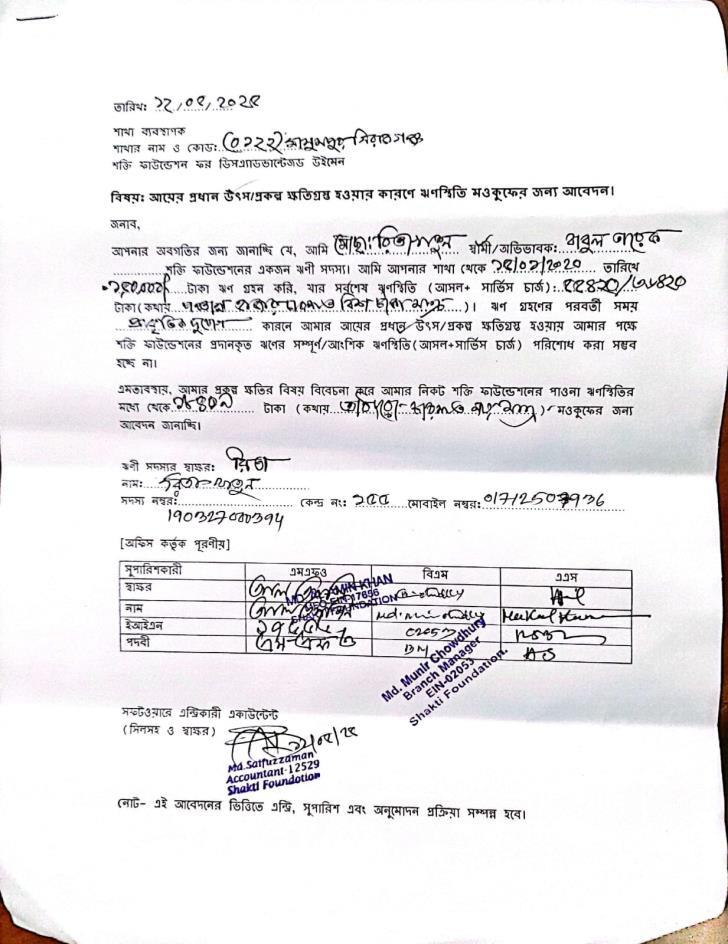 তারিখ: ১২/০৫/২০২৫
শাখা ব্যবস্থাপক
শাখার নাম ও কোড: (০১২২) সিরাজগঞ্জ
শক্তি ফাউন্ডেশন ফর ডিসএ্যাডভান্টেজড উইমেন
বিষয়: আয়ের প্রধান উৎস/প্রকল্প ক্ষতিগ্রস্ত হওয়ার কারণে ঋণস্থিতি মওকুফের জন্য আবেদন।
জনাব,
আপনার অবগতির জন্য জানাচ্ছি যে, আমি মোছা: রিতা খাতুন স্বামী/অভিভাবক: বাবুল
শক্তি ফাউন্ডেশনের একজন ঋণী সদস্য। আমি আপনার শাখা থেকে তারিখে
টাকা ঋণ গ্রহন করি, যার সর্বশেষ ঋণস্থিতি (আসল+ সার্ভিস চার্জ):
টাকা (কথায় )। ঋণ গ্রহণের পরবর্তী সময়
প্রাকৃতিক দুর্যোগ কারনে আমার আয়ের প্রধান উৎস/প্রকল্প ক্ষতিগ্রস্ত হওয়ায় আমার পক্ষে
শক্তি ফাউন্ডেশনের প্রদানকৃত ঋণের সম্পূর্ণ/আংশিক ঋণস্থিতি (আসল+সার্ভিস চার্জ) পরিশোধ করা সম্ভব
হচ্ছে না।
এমতাবস্থায়, আমার প্রকল্প ক্ষতির বিষয় বিবেচনা করে আমার নিকট শক্তি ফাউন্ডেশনের পাওনা ঋণস্থিতির
মধ্যে থেকে টাকা (কথায় ) মওকুফের জন্য
আবেদন জানাচ্ছি।
ঋণী সদস্যর স্বাক্ষর: রিতা
নাম: রিতা খাতুন
সদস্য নম্বর: কেন্দ্র নং: ১৫৫ মোবাইল নম্বর:
190327000394
[অফিস কর্তৃক পূরণীয়]
সুপারিশকারী এমএফও বিএম এএস
স্বাক্ষর
নাম
ইআইএন 02053
পদবী BM AS
MD. AL AMIN KHAN
SHAKTI FOUNDATION
Md. Munir Chowdhury
Branch Manager
EIN-02053
Shakti Foundation.
সফটওয়ারে এন্ট্রিকারী একাউন্টেন্ট
(সিলসহ ও স্বাক্ষর)
Md. Saifuzzaman
Accountant-12529
Shakti Foundotion
নোট- এই আবেদনের ভিত্তিতে এন্ট্রি, সুপারিশ এবং অনুমোদন প্রক্রিয়া সম্পন্ন হবে।